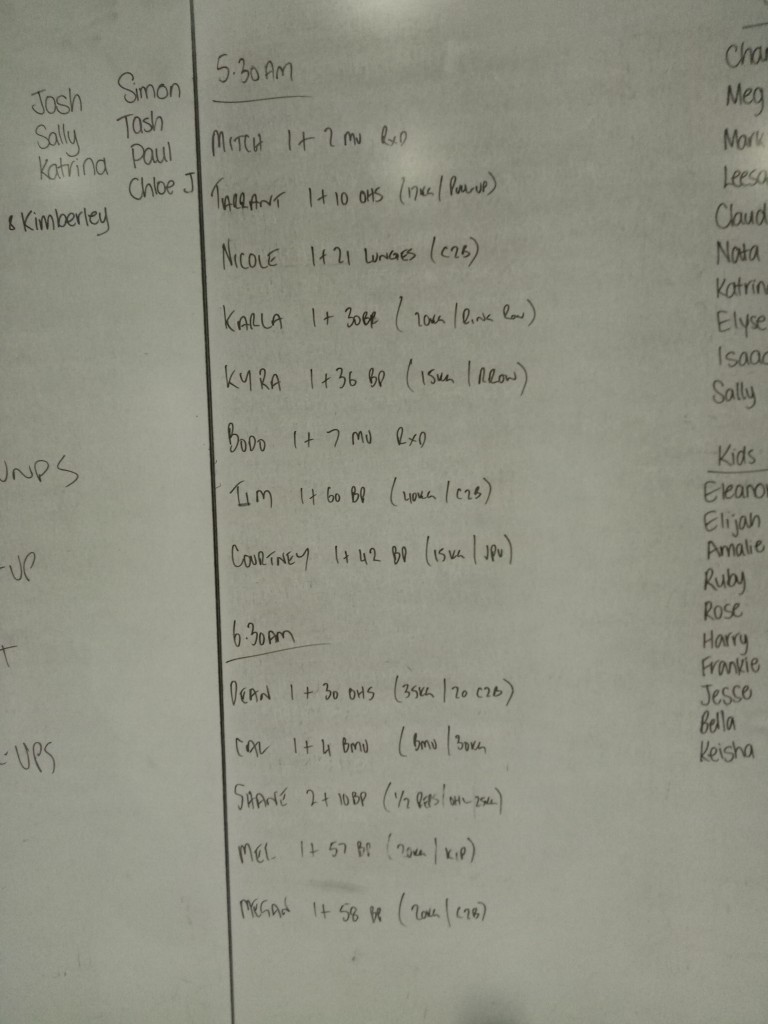 Josh Simon
Sally Tash
Katrina Paul
Chloe J
& Kimberley
UNPS
-UP
T
-UPS
5.30AM
MITCH 1+2 MU RXD
TARRANT 1+10 OHS (17KG/PULL-UP)
NICOLE 1+21 LUNGES (C2B)
KARLA 1+30BP (20KG/RING ROW)
KYRA 1+36 BP (15KG/RROW)
BODO 1+7 MU RXD
TIM 1+60 BP (40KG/C2B)
COURTNEY 1+42 BP (15KG/JPU)
6.30AM
DEAN 1+30 OHS (35KG/20 C2B)
CAL 1+4 BMU (BMU/30KG
SHANE 2+10BP (1/2 REPS/OHL-25KG)
MEL 1+57 BP (20KG/KIP)
MEGAN 1+58 BP (20KG/C2B)
Char
Meg
Mark
Leesa
Claud
Nata
Katrin
Elyse
Isaac
Sally
Kids
Eleanor
Elijah
Amalie
Ruby
Rose
Harry
Frankie
Jesse
Bella
Keisha